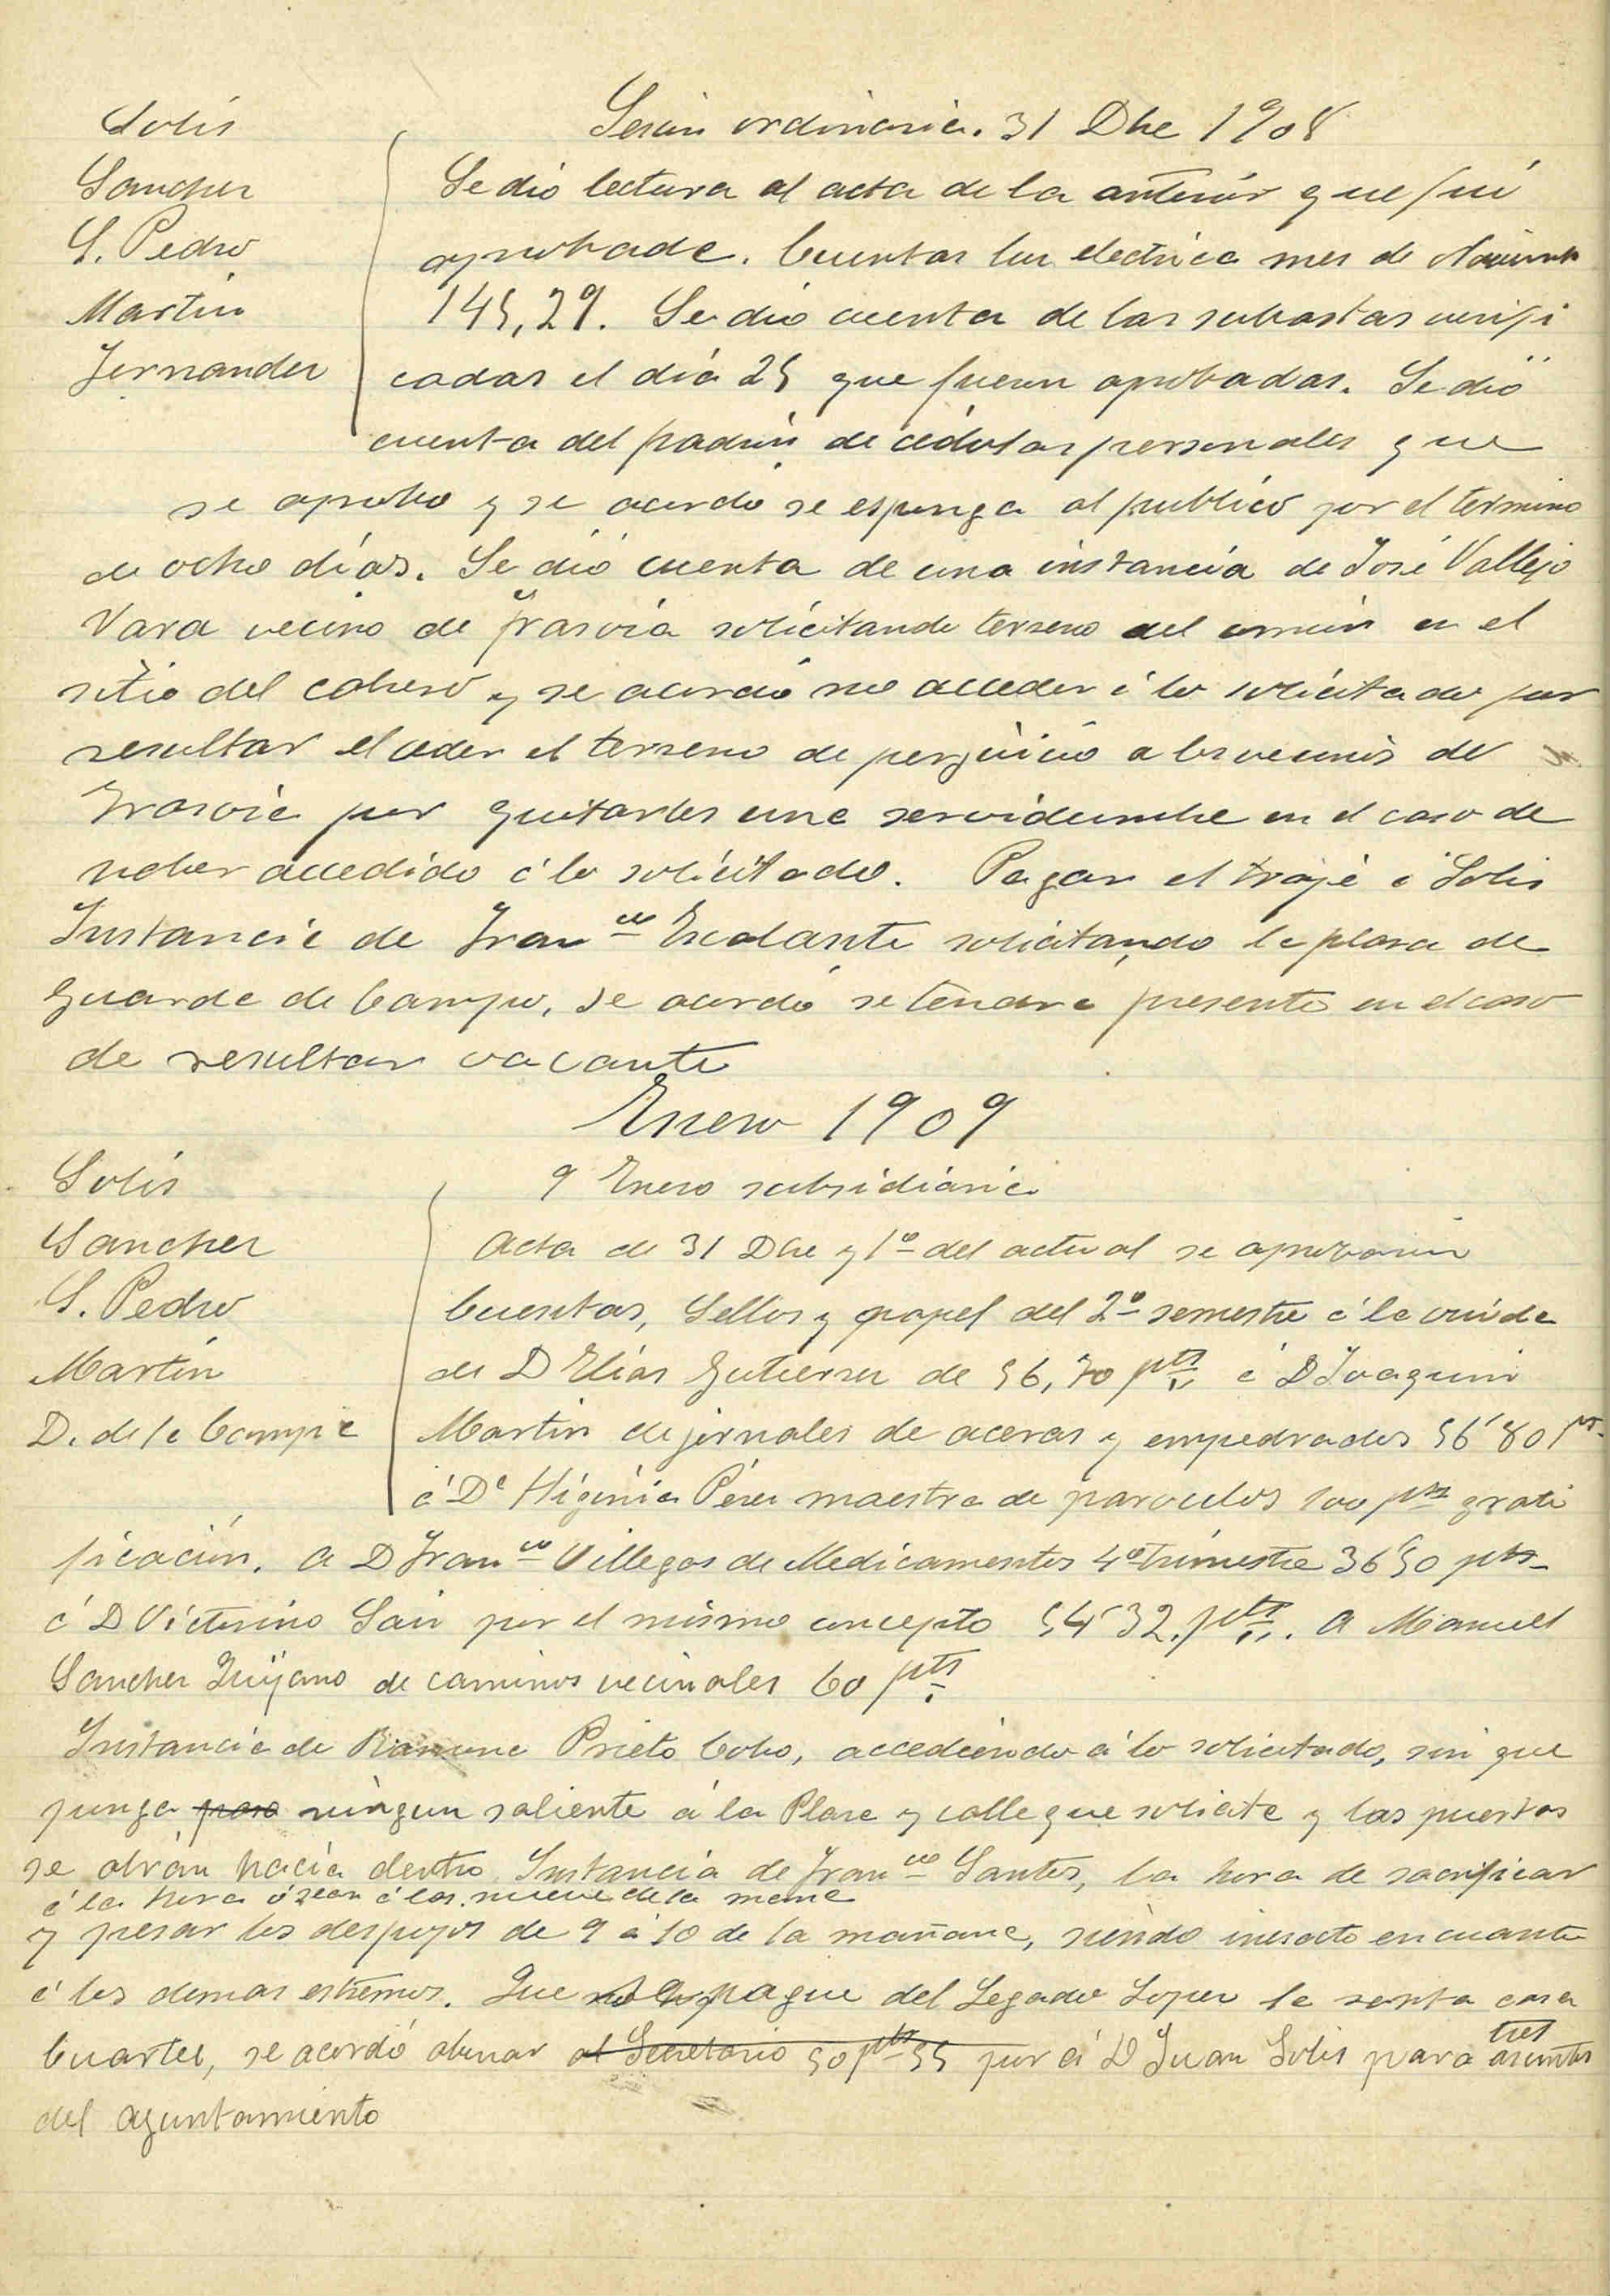 Solis
Sanchez
S. Pedro
Martin
Fernandez
Sesion ordinaria. 31 Dbe 1908
Se dió lectura al acta de la anterior que fué
aprobada. Cuentas luz electrica mes de Noviembre
145,29. Se dió cuenta de las subastas verifi
cadas el día 25 que fueron aprobadas. Se dió
cuenta del padrón de cédulas personales que
se aprobo y se acordo se esponga al publico por el termino
de ocho días. Se dió cuenta de una instancia de José Vallejo
Vara vecino de Trasvia solicitando terreno del comun en el
sitio del y se acordó no acceder á lo solicitado por
resultar el ceder el terreno de perjuicio a los vecinos de
Trasvia por quitarles una servidumbre en el caso de
haber accedido á lo solicitado. Pagar el traje á Solis
Instancia de Franco Escalante solicitando la plaza de
Guarda de Campo, se acordó se tendra presente en el caso
de resultar vacante
Enero 1909
Solis
Sanchez
S. Pedro
Martin
D. de la Campa
9 Enero subsidiaria
Acta de 31 Dbe y 1º del actual se aprobaron
Cuentas, Sellos y papel del 2º semestre á la viuda
de D Elias Gutierrez de 56,70 pts á D Joaquin
Martin de jornales de aceras y empedrados 56'80 pts
á Dª Higinia Pérez maestra de parvulos 100 pts grati
ficación. A D Franco Villegas de Medicamentos 4º trimestre 36'50 pts
á D Victorino Sair por el mismo concepto 54'32 pts. A Manuel
Sanchez Quijano de caminos vecinales 60 pts
Instancia de Ramona Prieto Cobo, accediendo á lo solicitado, sin que
ponga para ningun saliente á la Plaza y calle que solicita y las puertas
se abran hacia dentro Instancia de Franco Santos, la hora de sacrificar
á la hora ó sean á las nueve de la mana
y pesar los despojos de 9 á 10 de la mañana, siendo inesacto en cuanto
á los demas estremos. Que se pague del Legado Lopez la renta casa
Cuartel, se acordó abonar al Secretario 50 pts 55 por á D Juan Solis para tres asuntos
del ayuntamiento